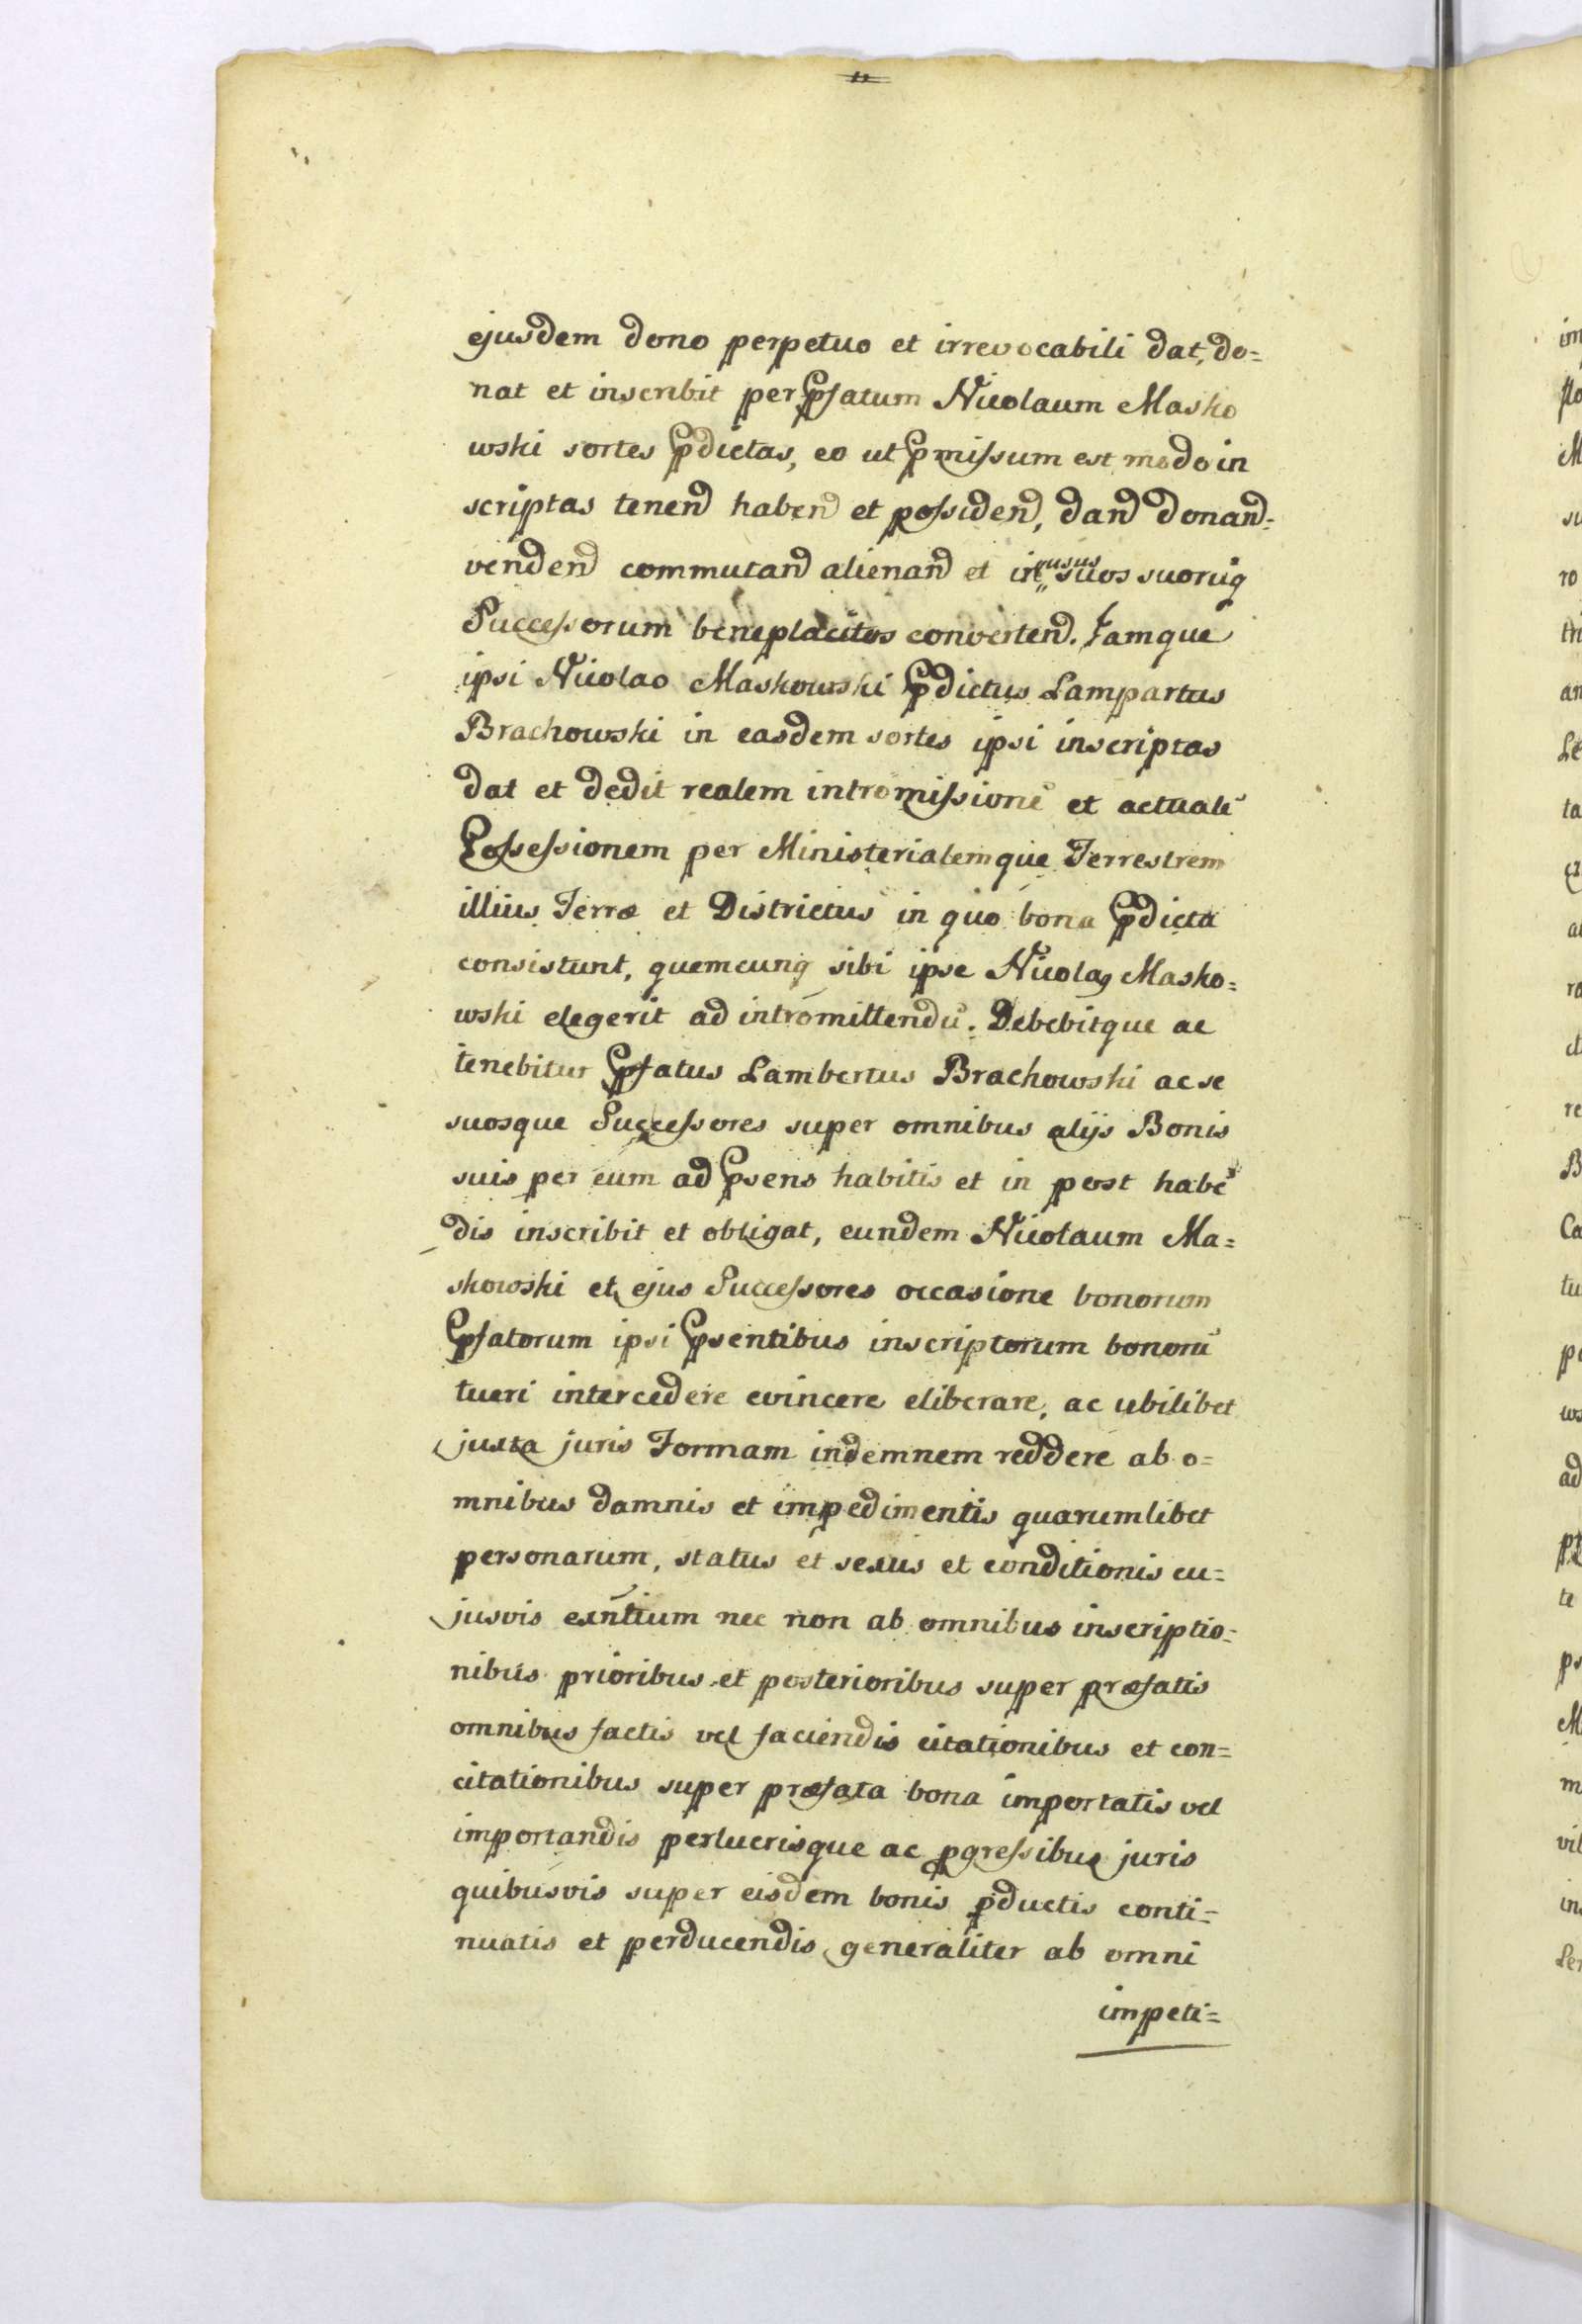 ejusdem dono perpetuo et irrevocabili dat, do=
nat et inscribit per Pfatum Nicolaum Masko
wski sortes Pdictas, eo ut Pmissum est modo in
scriptas tenend haben̄d et possiden̄d, dan̄d donan̄d=
venden̄d commutan̄d alienan̄d et in usus suos suorūq
Successorum beneplacitos converten̄d. Jamque
ipsi Nicolao Maskowski Pdictus Lampartus
Brachowski in easdem sortes ipsi inscriptas
dat et dedit realem intromissionē et actualē
Possessionem per Ministerialemque Terrestrem
illius Terræ et Districtus in quo bona Pdicta
consistunt, quemcunq sibi ipse Nicolaq Masko=
wski elegerit ad intromittendū. Debebitque ac
tenebitur Pfatus Lambertus Brachowski ac se
suosque Successores super omnibus alijs Bonis
suis per eum ad Psens habitis et in post habē
dis inscribit et obligat, eundem Nicolaum Ma=
skowski et ejus Successores occasione bonorum
Pfatorum ipsi Psentibus inscriptorum bonorū
tueri intercedere evincere eliberare, ac ubilibet
juxta juris Formam indemnem reddere ab o=
mnibus damnis et impedimentis quarumlibet
personarum, status et sexus et conditionis cu=
jusvis exn̄tium nec non ab omnibus inscriptio=
nibus prioribus et posterioribus super præfatis
omnibus factis vel faciendis citationibus et con=
citationibus super præfata bona importatis vel
importandis perlucrisque ac pgressibus juris
quibusvis super eisdem bonis pductis conti=
nuatis et perducendis generaliter ab omni
impeti=